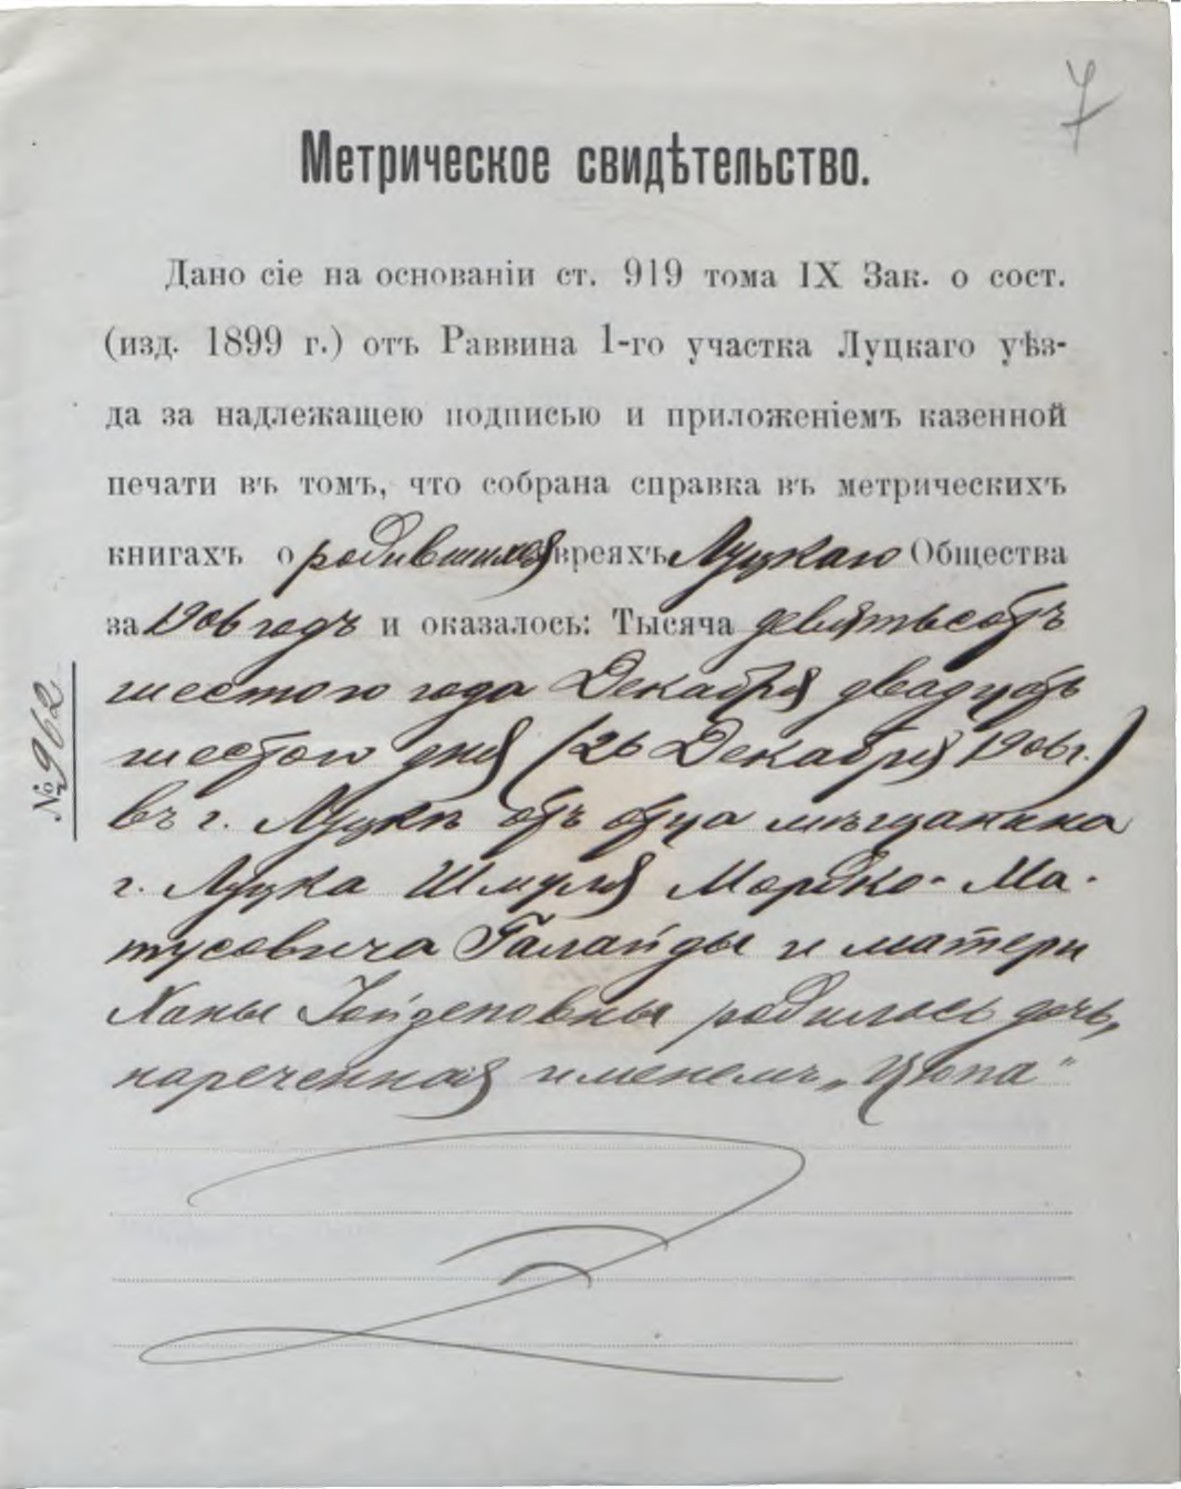 7
Метрическое свидѣтельство.
Дано сіе на основаніи ст. 919 тома IX Зак. о сост.
(изд. 1899 г.) отъ Раввина 1-го участка Луцкаго уѣз-
да за надлежащею подписью и приложеніемъ казенной
печати въ томъ, что собрана справка въ метрическихъ
книгахъ о родившихся евреяхъ Луцкаго Общества
за 1906 годъ и оказалось: Тысяча девятьсотъ
шестого года Декабря двадцать
шестого дня (26 Декабря 1906 г.)
въ г. Луцкѣ отъ отца мѣщанина
г. Луцка Шмуля Мордко-Ма-
тусовича Галайды и матери
Ханы родилась дочь,
нареченная именемъ „Цюпа"
№ 962